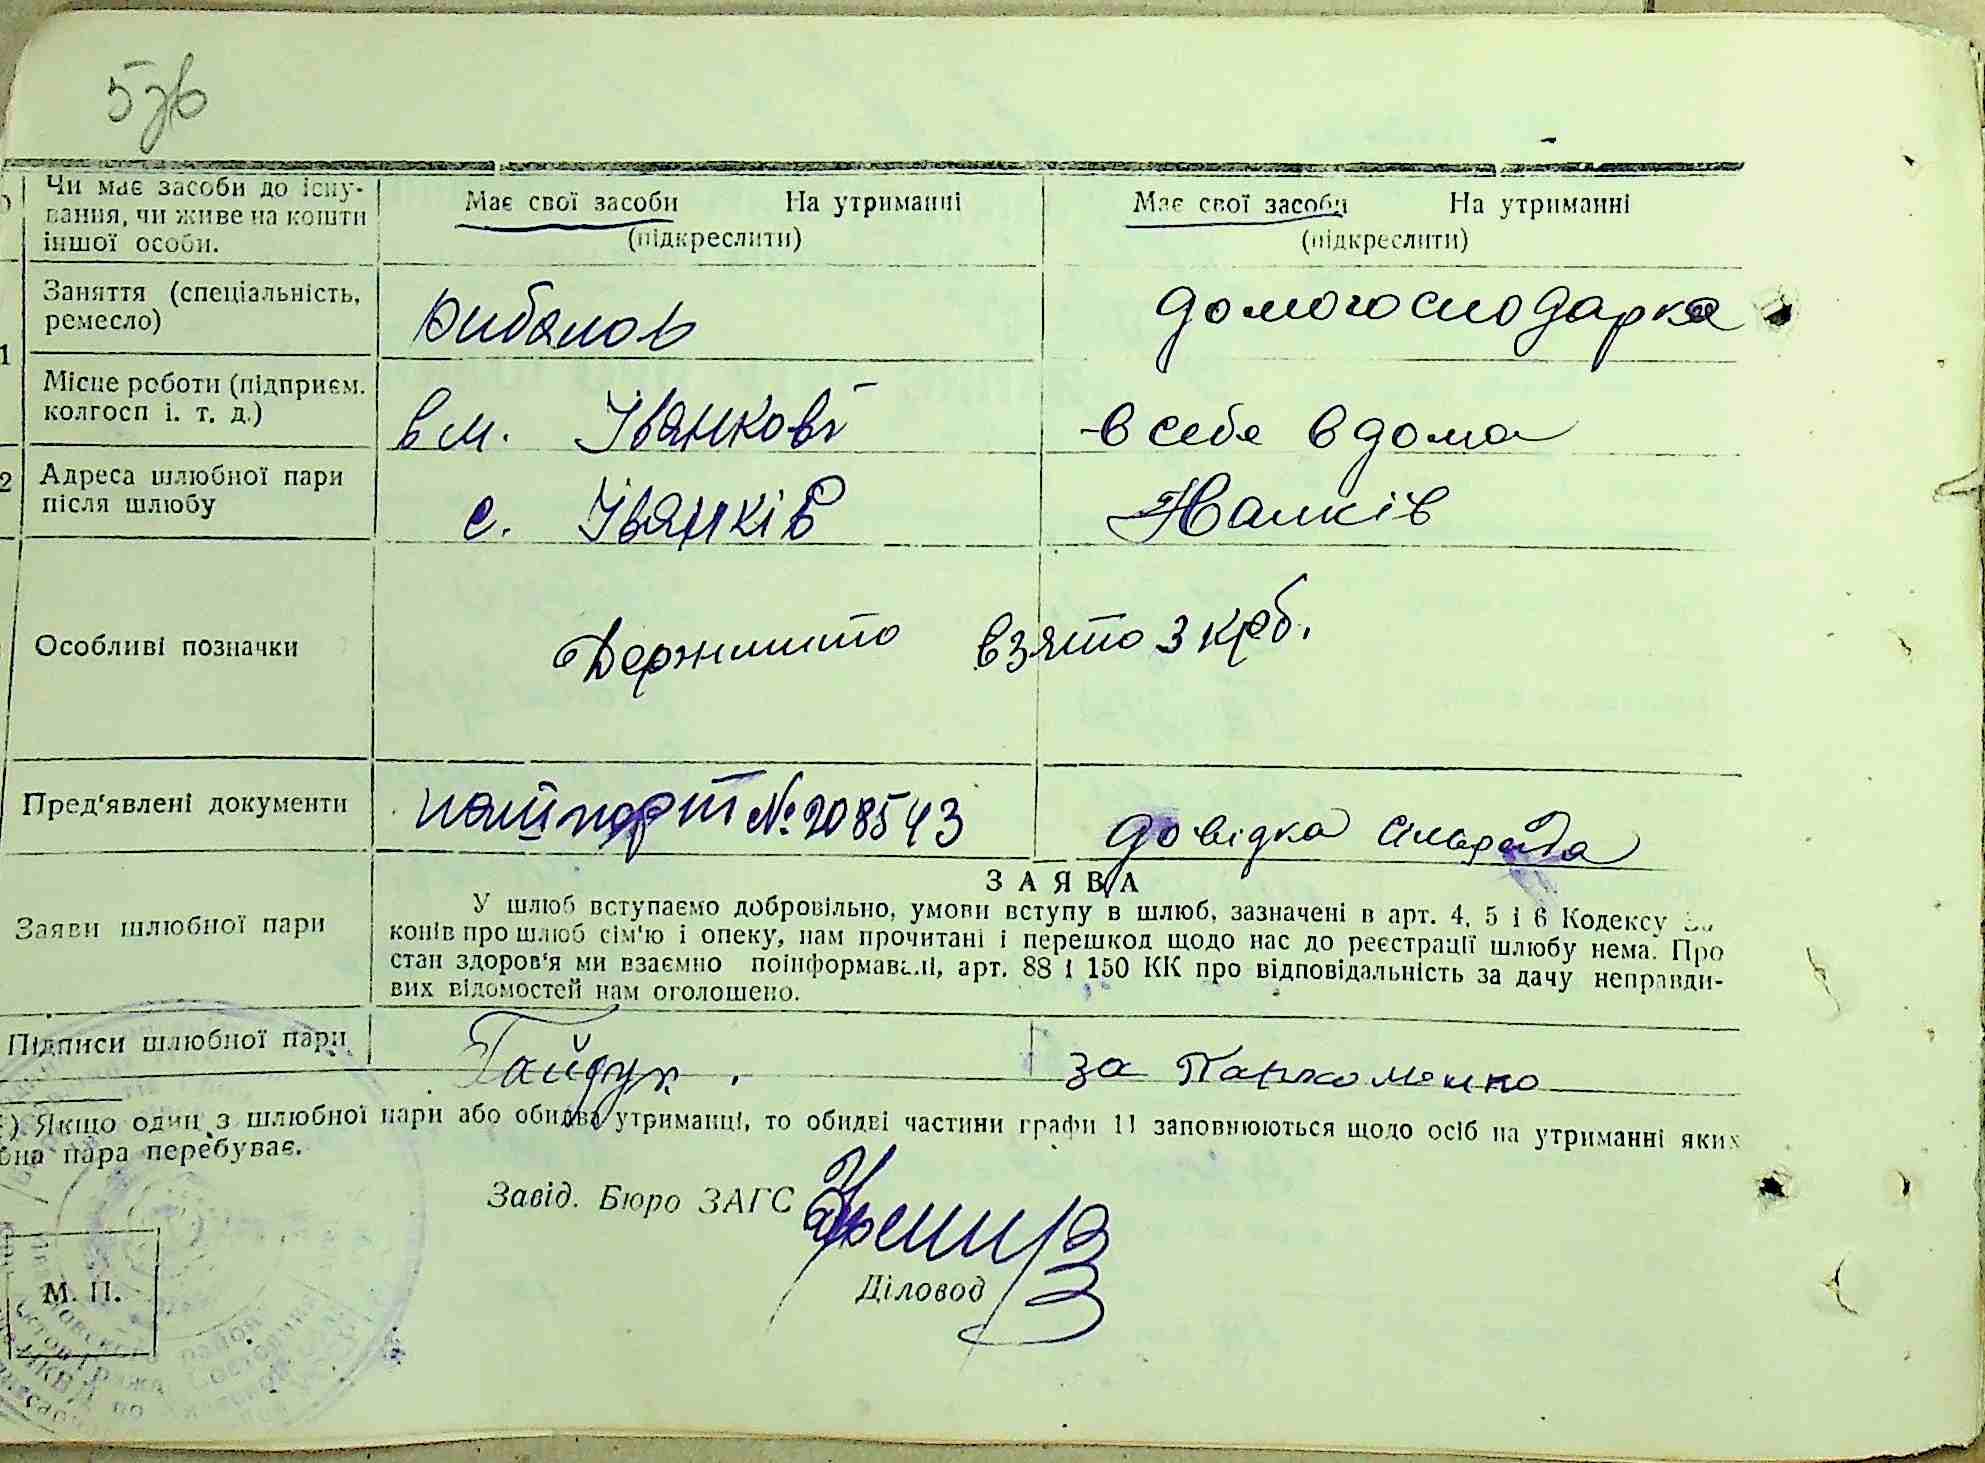 5зв
Чи має засоби до існу-
вання, чи живе на кошти
іншої особи.
Має свої засоби На утриманні
(підкреслити)
Має свої засоби На утриманні
(підкреслити)
Заняття (спеціальність,
ремесло)
рибалов
домогосподарка
1
Місце роботи (підприєм.
колгосп і. т. д.)
в м. Іванкові
в себе вдома
2
Адреса шлюбної пари
після шлюбу
с. Іванків
Іванків
Особливі позначки
Держмито взято 3 крб.
Пред'явлені документи
пашпорт № 208543
довідка сільрада
Заяви шлюбної пари
ЗАЯВА
У шлюб вступаємо добровільно, умови вступу в шлюб, зазначені в арт. 4, 5 і 6 Кодексу за
конів про шлюб сім'ю і опеку, нам прочитані і перешкод щодо нас до реєстрації шлюбу нема. Про
стан здоров'я ми взаємно поінформавалі, арт. 88 і 150 КК про відповідальність за дачу неправди-
вих відомостей нам оголошено.
Підписи шлюбної пари
Гайдук.
за Пархоменко
) Якщо один з шлюбної пари або обидва утриманці, то обидві частини графи 11 заповнюються щодо осіб на утриманні яких
бна пара перебуває.
Завід. Бюро ЗАГС
Діловод
М. П.